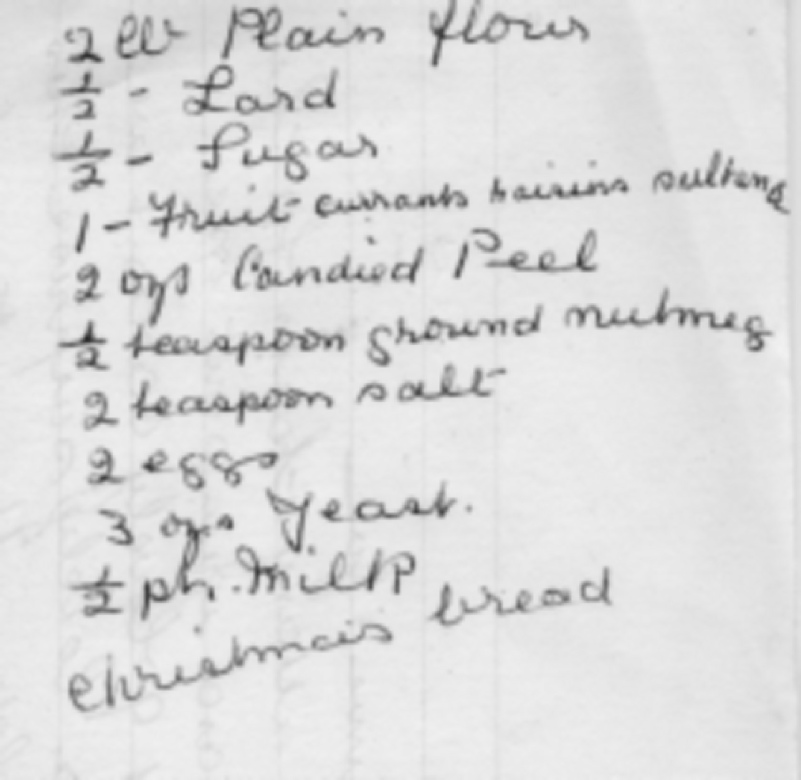 2 lb Plain flour
1/2 - Lard
1/2 - Sugar
1 - Fruit currants raisins sultana
2 ozs Candied Peel
1/2 teaspoon ground nutmeg
2 teaspoon salt
2 eggs
3 ozs Yeast.
1/2 pt. Milk
Christmas bread